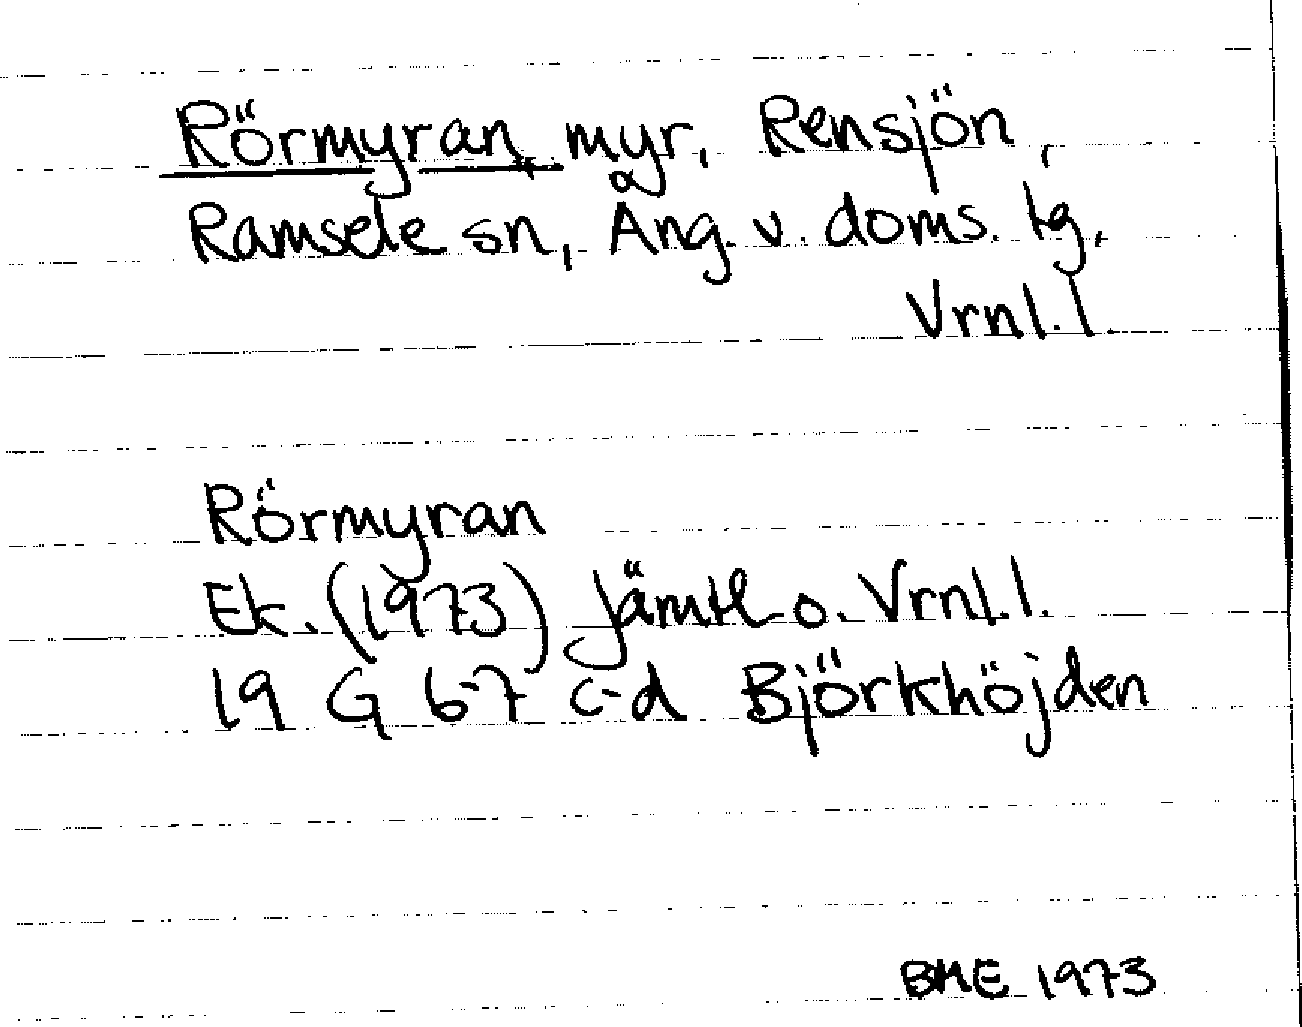 Rörmyran, myr, Rensjön,
Ramsele sn, Ång. v. doms. tg,
Vrnl. l.
Rörmyran
Ek. (1973) Jämtl. o. Vrnl. l.
19 G 6-7 c-d Björkhöjden
BME 1973